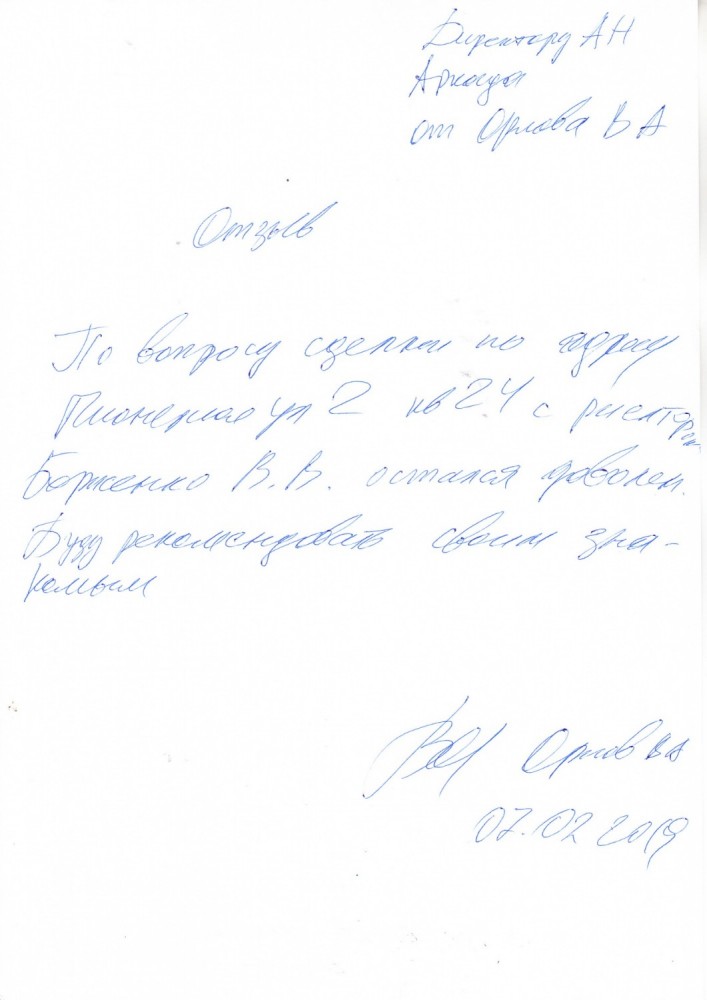 Директору АН
Аркада
от Орлова В А
Отзыв
По вопросу сделки по адресу
Пионерская ул 2 кв 24 с риелтором
Борженко В.В. остался доволен.
Буду рекомендовать своим зна-
комым
Орлов ВА
07.02 2019